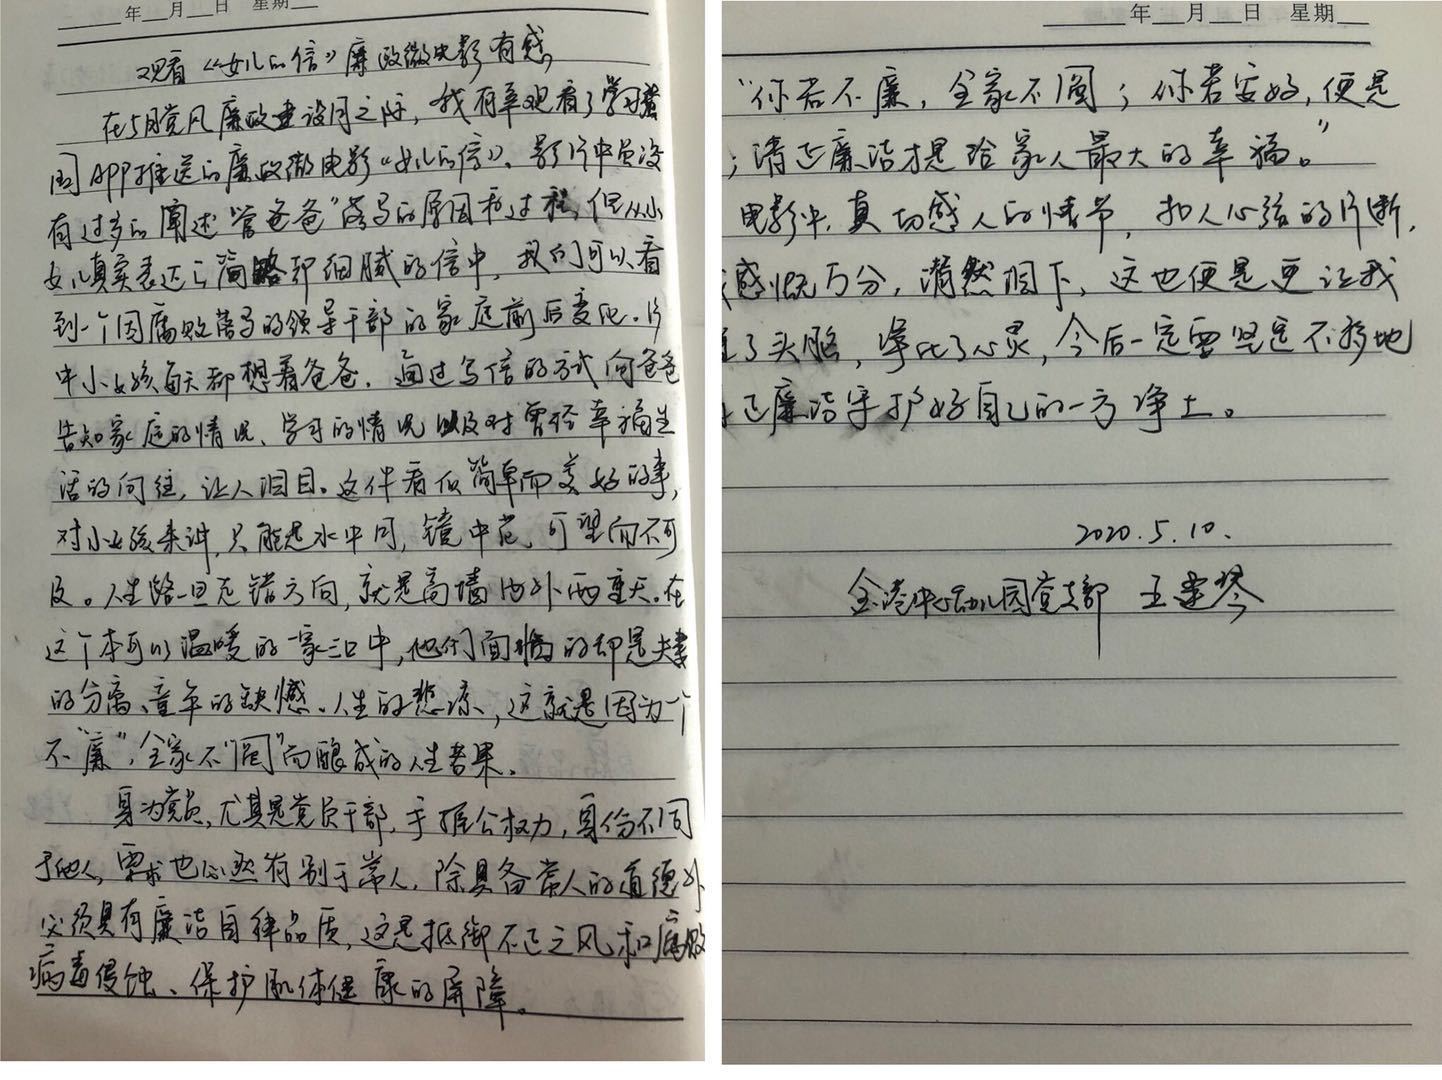 年 月 日 星期
观看《女儿的信》廉政微电影有感
在5月党风廉政建设月之际，我有幸观看了学习强
国APP推送的廉政微电影《女儿的信》、影片中虽没
有过多的阐述“官爸爸”落马的原因和过程，但从小
女儿真实表达的简略却细腻的信中，我们可以看
到一个因腐败落马的领导干部的家庭前后变化。片
中小女孩每天都想着爸爸，通过写信的方式向爸爸
告知家庭的情况、学习的情况以及对曾经幸福生
活的向往，让人泪目。这件看似简单而美好的事，
对小女孩来讲，只能是水中月，镜中花，可望而不可
及。人生路一旦走错方向，就是高墙内外两重天。在
这个本可以温暖的一家三口中，他们面临的却是夫妻
的分离、童年的缺憾、人生的悲凉，这就是因为一个
不“廉”，全家不“圆”而酿成的人生苦果。
身为党员，尤其是党员干部，手握公权力，身份不同
于他人，要求也必然有别于常人，除具备常人的道德外
必须具有廉洁自律品质，这是抵御不正之风和腐败
病毒侵蚀、保护肌体健康的屏障。
年 月 日 星期
“你若不廉，全家不圆；你若安好，便是
；清正廉洁才是给家人最大的幸福。”
电影中，真切感人的情节，扣人心弦的片断，
感慨万分，潸然泪下，这也便是更让我
了头脑，净化了心灵，今后一定要坚定不移地
正廉洁守护好自己的一方净土。
2020.5.10.
金港中心幼儿园党支部 王建琴